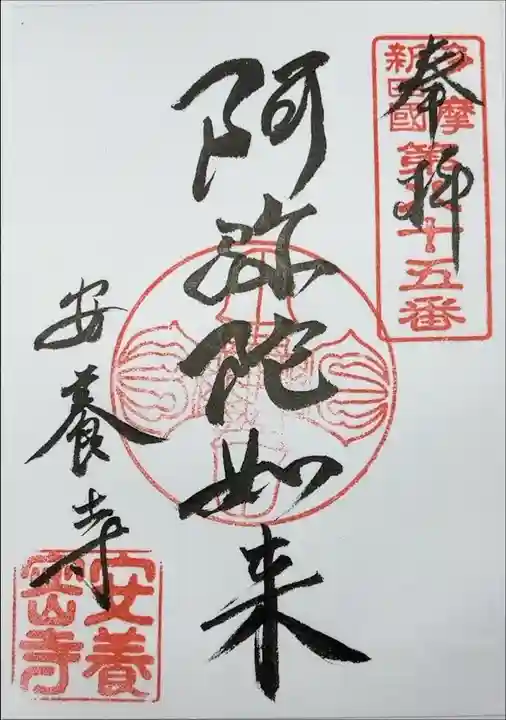 奉拝
多摩
新四國
第十五番
阿弥陀如来
安養寺
安養
密寺